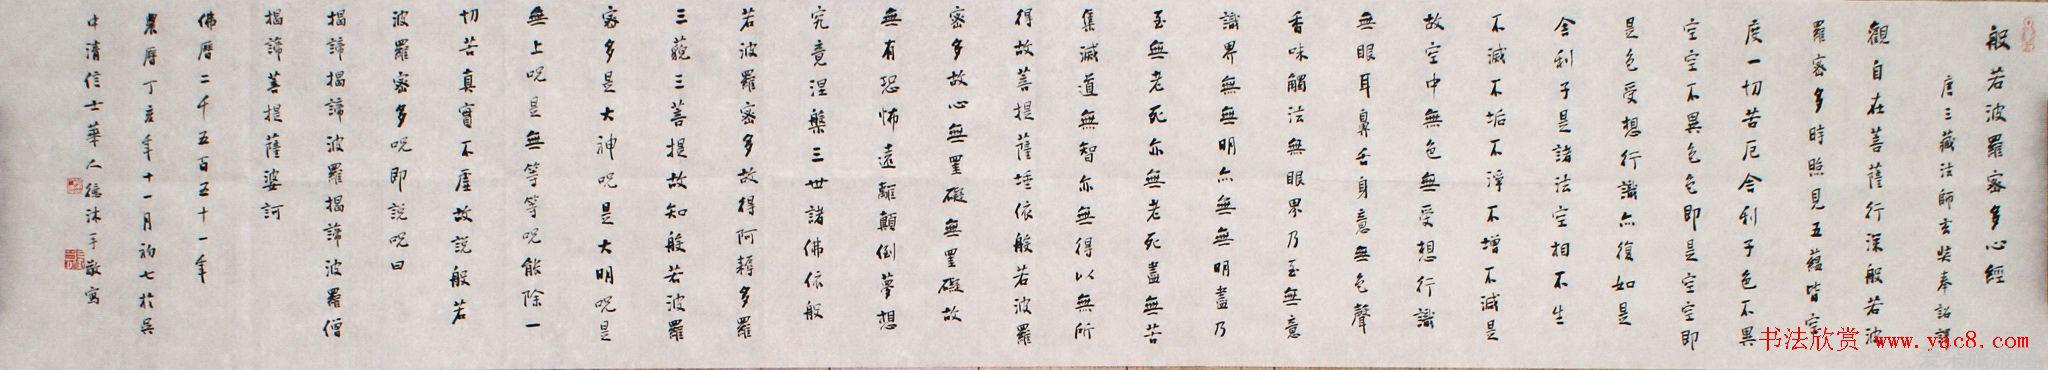 般若波羅密多心經
唐三藏法師玄奘奉詔譯
觀自在菩薩行深般若波
羅密多時照見五蘊皆空
度一切苦厄舍利子色不異
空空不異色色即是空空即
是色受想行識亦復如是
舍利子是諸法空相不生
不滅不垢不淨不增不減是
故空中無色無受想行識
無眼耳鼻舌身意無色聲
香味觸法無眼界乃至無意
識界無無明亦無無明盡乃
至無老死亦無老死盡無苦
集滅道無智亦無得以無所
得故菩提薩埵依般若波羅
密多故心無罣礙無罣礙故
無有恐怖遠離顛倒夢想
究竟涅槃三世諸佛依般
若波羅密多故得阿耨多羅
三藐三菩提故知般若波羅
密多是大神咒是大明咒是
無上咒是無等等咒能除一
切苦真實不虛故說般若
波羅密多咒即說咒曰
揭諦揭諦波羅揭諦波羅僧
揭諦菩提薩婆訶
佛曆二千五百五十一年
農曆丁亥年十一月初七於吳
中清信士華人德沐手敬寫
书法欣赏 www.yac8.com